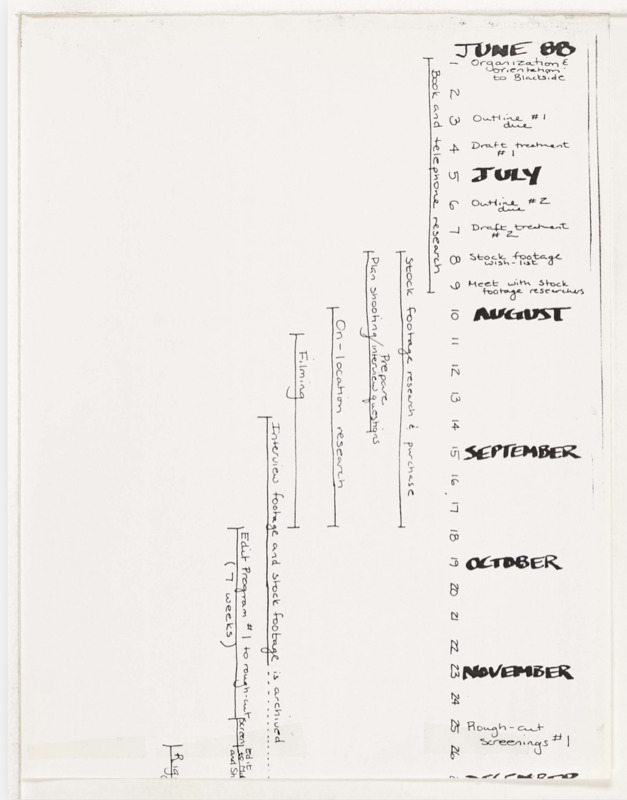 JUNE 88
1 Organization &
orientation
to Blackside
2
3 Outline #1
due
4 Draft treatment
#1
5 JULY
6 Outline #2
due
7 Draft treatment
#2
8 Stock footage
wish-list
9 Meet with stock
footage researchers
10 AUGUST
11
12
13
14
15 SEPTEMBER
16
17
18
19 OCTOBER
20
21
22
23 NOVEMBER
24
25 Rough-cut
26 screenings #1
Book and telephone research
Stock footage research & purchase
Prepare
Plan shooting/interview questions
On-location research
Filming
Interview footage and stock footage is archived
Edit Program #1 to rough-cut
(7 weeks)
edit
and